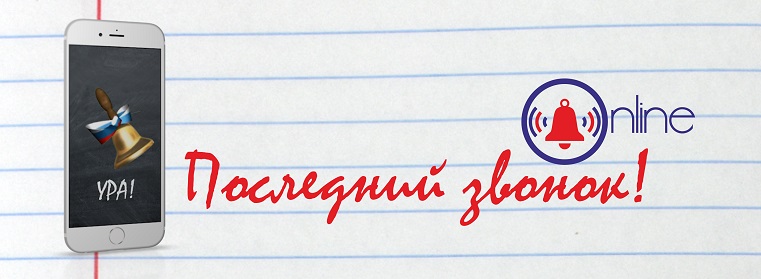 Online
Последний звонок!
УРА!